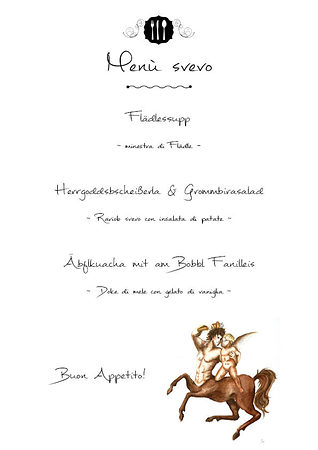 Menù svevo
Flädlessupp
~ minestra di Flädle ~
Herrgoddsbscheißerla & Grombirasalad
~ Ravioli svevo con insalata di patate ~
Äbflkuacha mit am Bobbl Fanilleis
~ Dolce di mele con gelato di vaniglia ~
Buon Appetito!